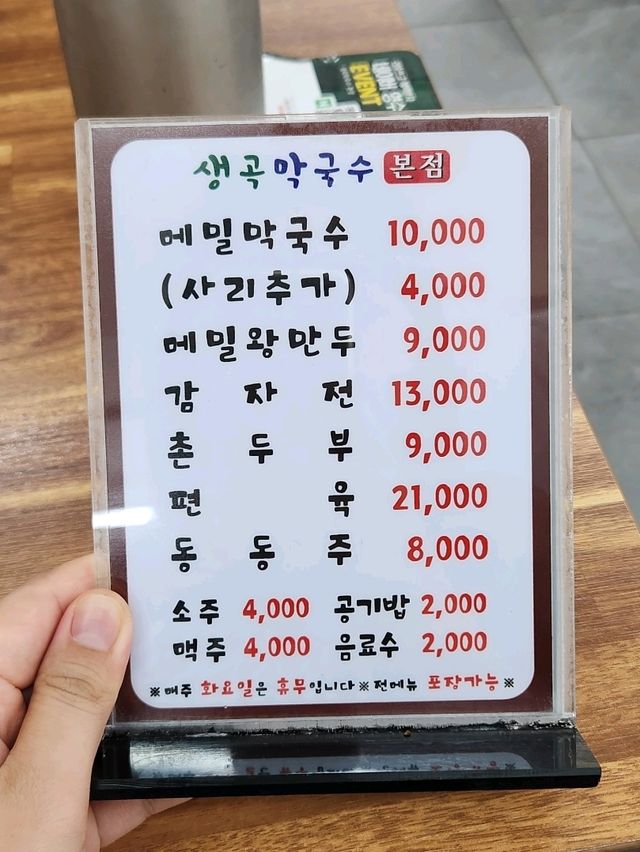 생곡막국수 본점
메밀막국수 10,000
(사리추가) 4,000
메밀왕만두 9,000
감자전 13,000
촌두부 9,000
편육 21,000
동동주 8,000
소주 4,000 공기밥 2,000
맥주 4,000 음료수 2,000
※매주 화요일은 휴무입니다※전메뉴 포장가능※
EVENT